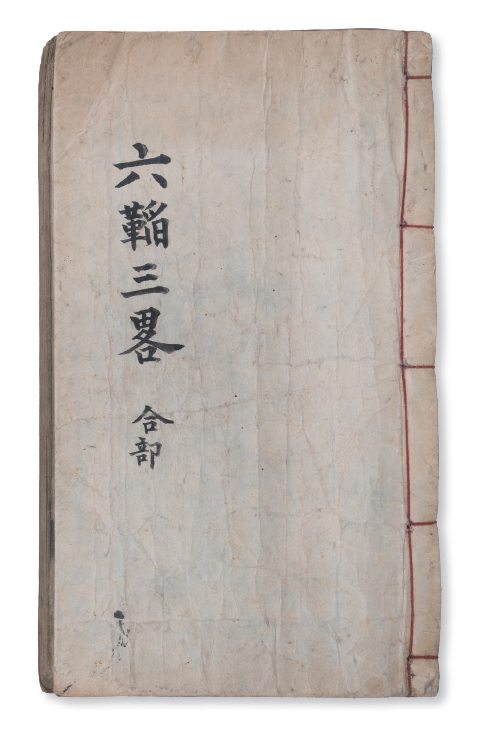 六韜三畧
合部